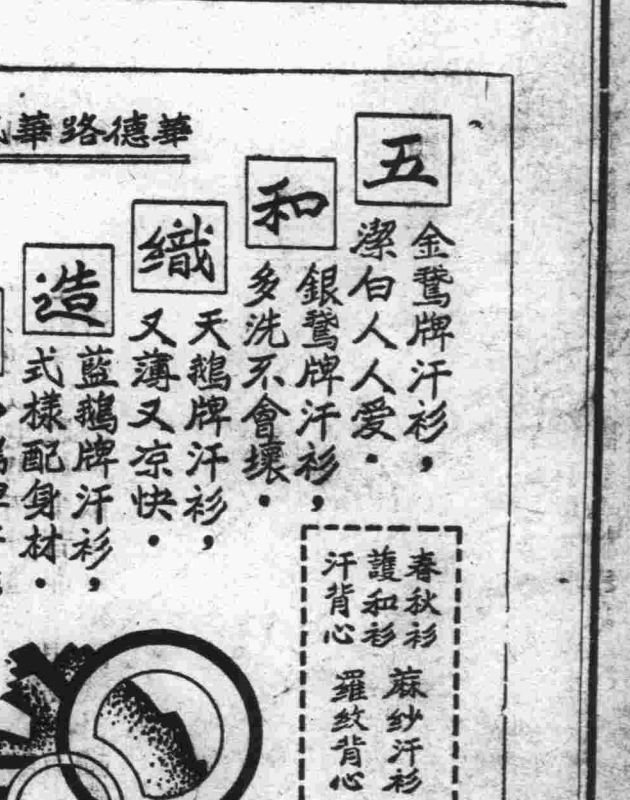 華德路華
五
金鵞牌汗衫，
潔白人人愛．
和
銀鵞牌汗衫，
多洗不會壞．
織
天鵝牌汗衫，
又薄又凉快．
造
藍鵝牌汗衫，
式樣配身材．
春秋衫
護和衫
汗背心
蔴紗汗衫
羅紋背心